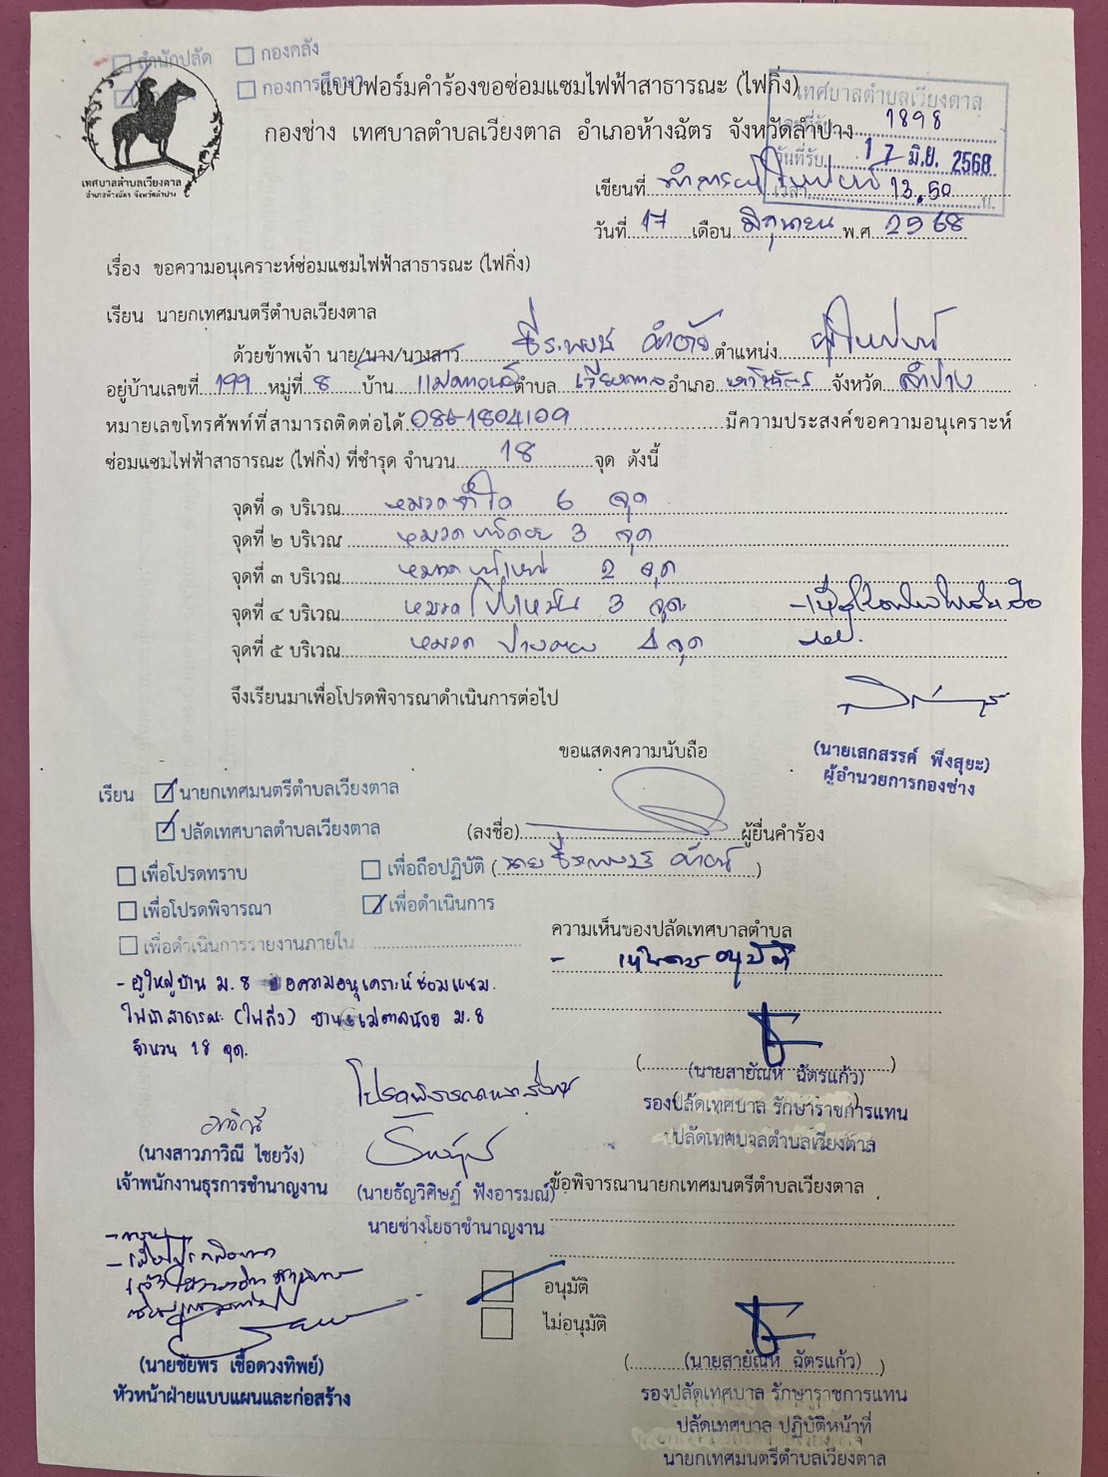 สำนักปลัด กองคลัง
กองการศึกษา
แบบฟอร์มคำร้องขอซ่อมแซมไฟฟ้าสาธารณะ (ไฟกิ่ง)
กองช่าง เทศบาลตำบลเวียงตาล อำเภอห้างฉัตร จังหวัดลำปาง
เทศบาลตำบลเวียงตาล
เลขที่รับ 1898
วันที่รับ 17 มิ.ย. 2568
เวลา 13.50 น.
เทศบาลตำบลเวียงตาล
อำเภอห้างฉัตร จังหวัดลำปาง
เขียนที่
วันที่ 17 เดือน มิถุนายน พ.ศ. 2568
เรื่อง ขอความอนุเคราะห์ซ่อมแซมไฟฟ้าสาธารณะ (ไฟกิ่ง)
เรียน นายกเทศมนตรีตำบลเวียงตาล
ด้วยข้าพเจ้า นาย/นาง/นางสาว ตำแหน่ง ผู้ใหญ่บ้าน
อยู่บ้านเลขที่ 199 หมู่ที่ 8 บ้าน แม่ตาลน้อย ตำบล เวียงตาล อำเภอ ห้างฉัตร จังหวัด ลำปาง
หมายเลขโทรศัพท์ที่สามารถติดต่อได้ 086-1804109 มีความประสงค์ขอความอนุเคราะห์
ซ่อมแซมไฟฟ้าสาธารณะ (ไฟกิ่ง) ที่ชำรุด จำนวน 18 จุด ดังนี้
จุดที่ ๑ บริเวณ หมวด 6 จุด
จุดที่ ๒ บริเวณ หมวด 3 จุด
จุดที่ ๓ บริเวณ หมวด 2 จุด
จุดที่ ๔ บริเวณ หมวด 3 จุด
จุดที่ ๕ บริเวณ หมวด 4 จุด
จึงเรียนมาเพื่อโปรดพิจารณาดำเนินการต่อไป
ขอแสดงความนับถือ
(นายเสกสรรค์ พึ่งสุยะ)
ผู้อำนวยการกองช่าง
เรียน นายกเทศมนตรีตำบลเวียงตาล
ปลัดเทศบาลตำบลเวียงตาล
(ลงชื่อ) ผู้ยื่นคำร้อง
เพื่อโปรดทราบ เพื่อถือปฏิบัติ
เพื่อโปรดพิจารณา เพื่อดำเนินการ
เพื่อดำเนินการรายงานภายใน
ความเห็นของปลัดเทศบาลตำบล
- เห็นควรอนุมัติ
- ผู้ใหญ่บ้าน ม.8 ขอความอนุเคราะห์ซ่อมแซม
ไฟฟ้าสาธารณะ (ไฟกิ่ง) บ้านแม่ตาลน้อย ม.8
จำนวน 18 จุด.
(นายสายัณห์ ฉัตรแก้ว)
รองปลัดเทศบาล รักษาราชการแทน
ปลัดเทศบาลตำบลเวียงตาล
(นางสาวภาวิณี ไชยวัง)
เจ้าพนักงานธุรการชำนาญงาน
(นายธัญวิศิษฏ์ ฟังอารมณ์)
นายช่างโยธาชำนาญงาน
ข้อพิจารณานายกเทศมนตรีตำบลเวียงตาล
อนุมัติ
ไม่อนุมัติ
(นายชัยพร เชื้อดวงทิพย์)
หัวหน้าฝ่ายแบบแผนและก่อสร้าง
(นายสายัณห์ ฉัตรแก้ว)
รองปลัดเทศบาล รักษาราชการแทน
ปลัดเทศบาล ปฏิบัติหน้าที่
นายกเทศมนตรีตำบลเวียงตาล